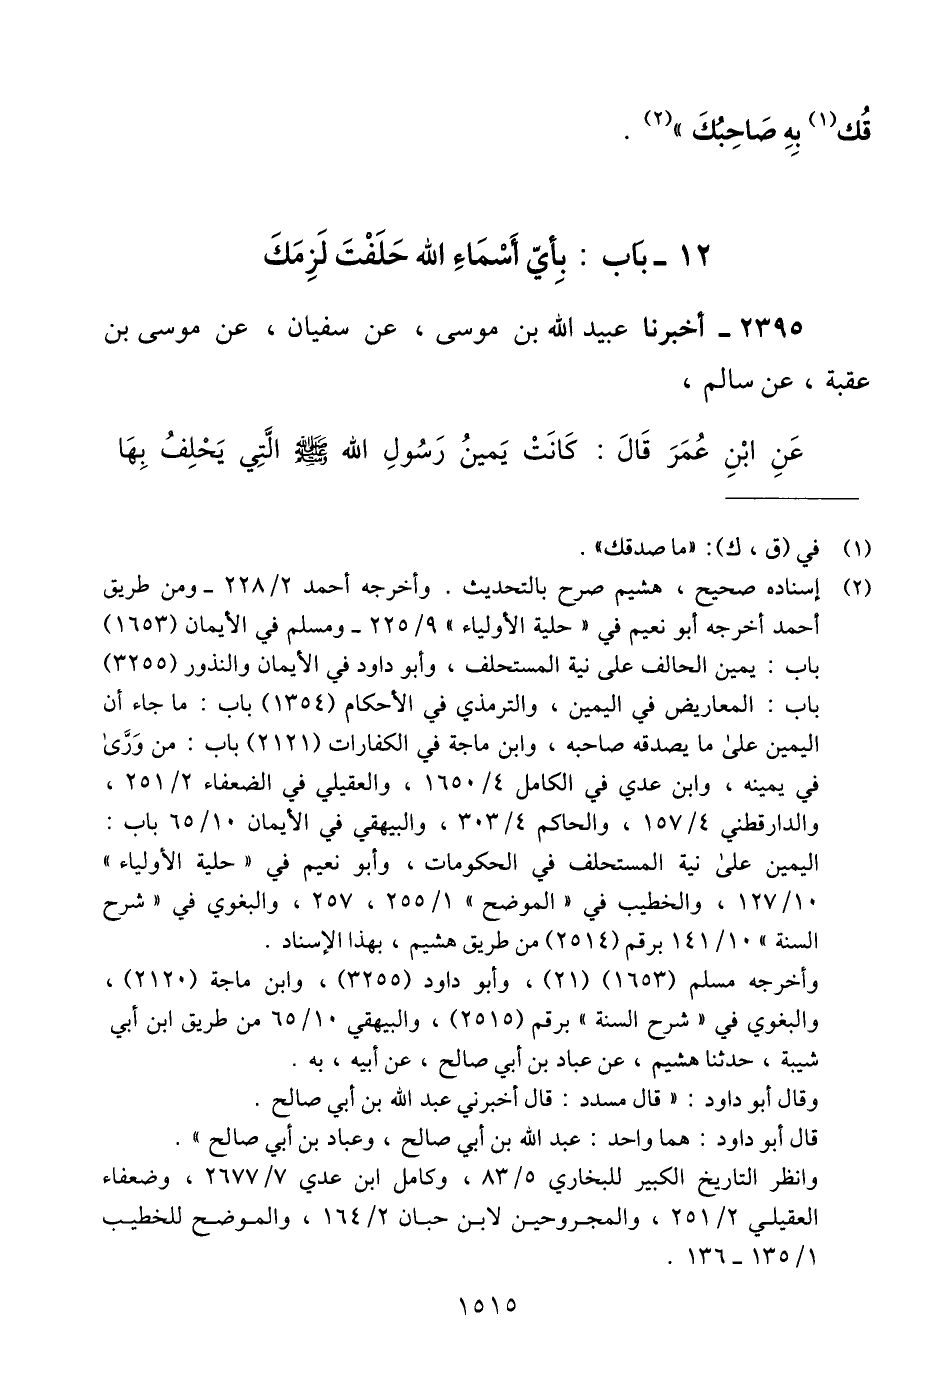 قُك(١) بِهِ صَاحِبُكَ »(٢) .
١٢ - بَاب : بِأَيِّ أَسْمَاءِ الله حَلَفْتَ لَزِمَكَ
٢٣٩٥ - أخبرنا عبيد الله بن موسى ، عن سفيان ، عن موسى بن
عقبة ، عن سالم ،
عَنِ ابْنِ عُمَرَ قَالَ : كَانَتْ يَمينُ رَسُولِ الله ﷺ الَّتِي يَحْلِفُ بِهَا
(١) في (ق ، ك): «ما صدقك» .
(٢) إسناده صحيح ، هشيم صرح بالتحديث . وأخرجه أحمد ٢٢٨/٢ - ومن طريق
أحمد أخرجه أبو نعيم في « حلية الأولياء » ٢٢٥/٩ - ومسلم في الأيمان (١٦٥٣)
باب : يمين الحالف على نية المستحلف ، وأبو داود في الأيمان والنذور (٣٢٥٥)
باب : المعاريض في اليمين ، والترمذي في الأحكام (١٣٥٤) باب : ما جاء أن
اليمين علىٰ ما يصدقه صاحبه ، وابن ماجة في الكفارات (٢١٢١) باب : من وَرَّىٰ
في يمينه ، وابن عدي في الكامل ١٦٥٠/٤ ، والعقيلي في الضعفاء ٢٥١/٢ ،
والدارقطني ١٥٧/٤ ، والحاكم ٣٠٣/٤ ، والبيهقي في الأيمان ٦٥/١٠ باب :
اليمين علىٰ نية المستحلف في الحكومات ، وأبو نعيم في « حلية الأولياء »
١٢٧/١٠ ، والخطيب في « الموضح » ٢٥٥/١ ، ٢٥٧ ، والبغوي في « شرح
السنة » ١٤١/١٠ برقم (٢٥١٤) من طريق هشيم ، بهذا الإسناد .
وأخرجه مسلم (١٦٥٣) (٢١) ، وأبو داود (٣٢٥٥) ، وابن ماجة (٢١٢٠) ،
والبغوي في « شرح السنة » برقم (٢٥١٥) ، والبيهقي ٦٥/١٠ من طريق ابن أبي
شيبة ، حدثنا هشيم ، عن عباد بن أبي صالح ، عن أبيه ، به .
وقال أبو داود : « قال مسدد : قال أخبرني عبد الله بن أبي صالح .
قال أبو داود : هما واحد : عبد الله بن أبي صالح ، وعباد بن أبي صالح » .
وانظر التاريخ الكبير للبخاري ٨٣/٥ ، وكامل ابن عدي ٢٦٧٧/٧ ، وضعفاء
العقيلي ٢٥١/٢ ، والمجروحين لابن حبان ١٦٤/٢ ، والموضح للخطيب
١٣٥/١ - ١٣٦ .
١٥١٥